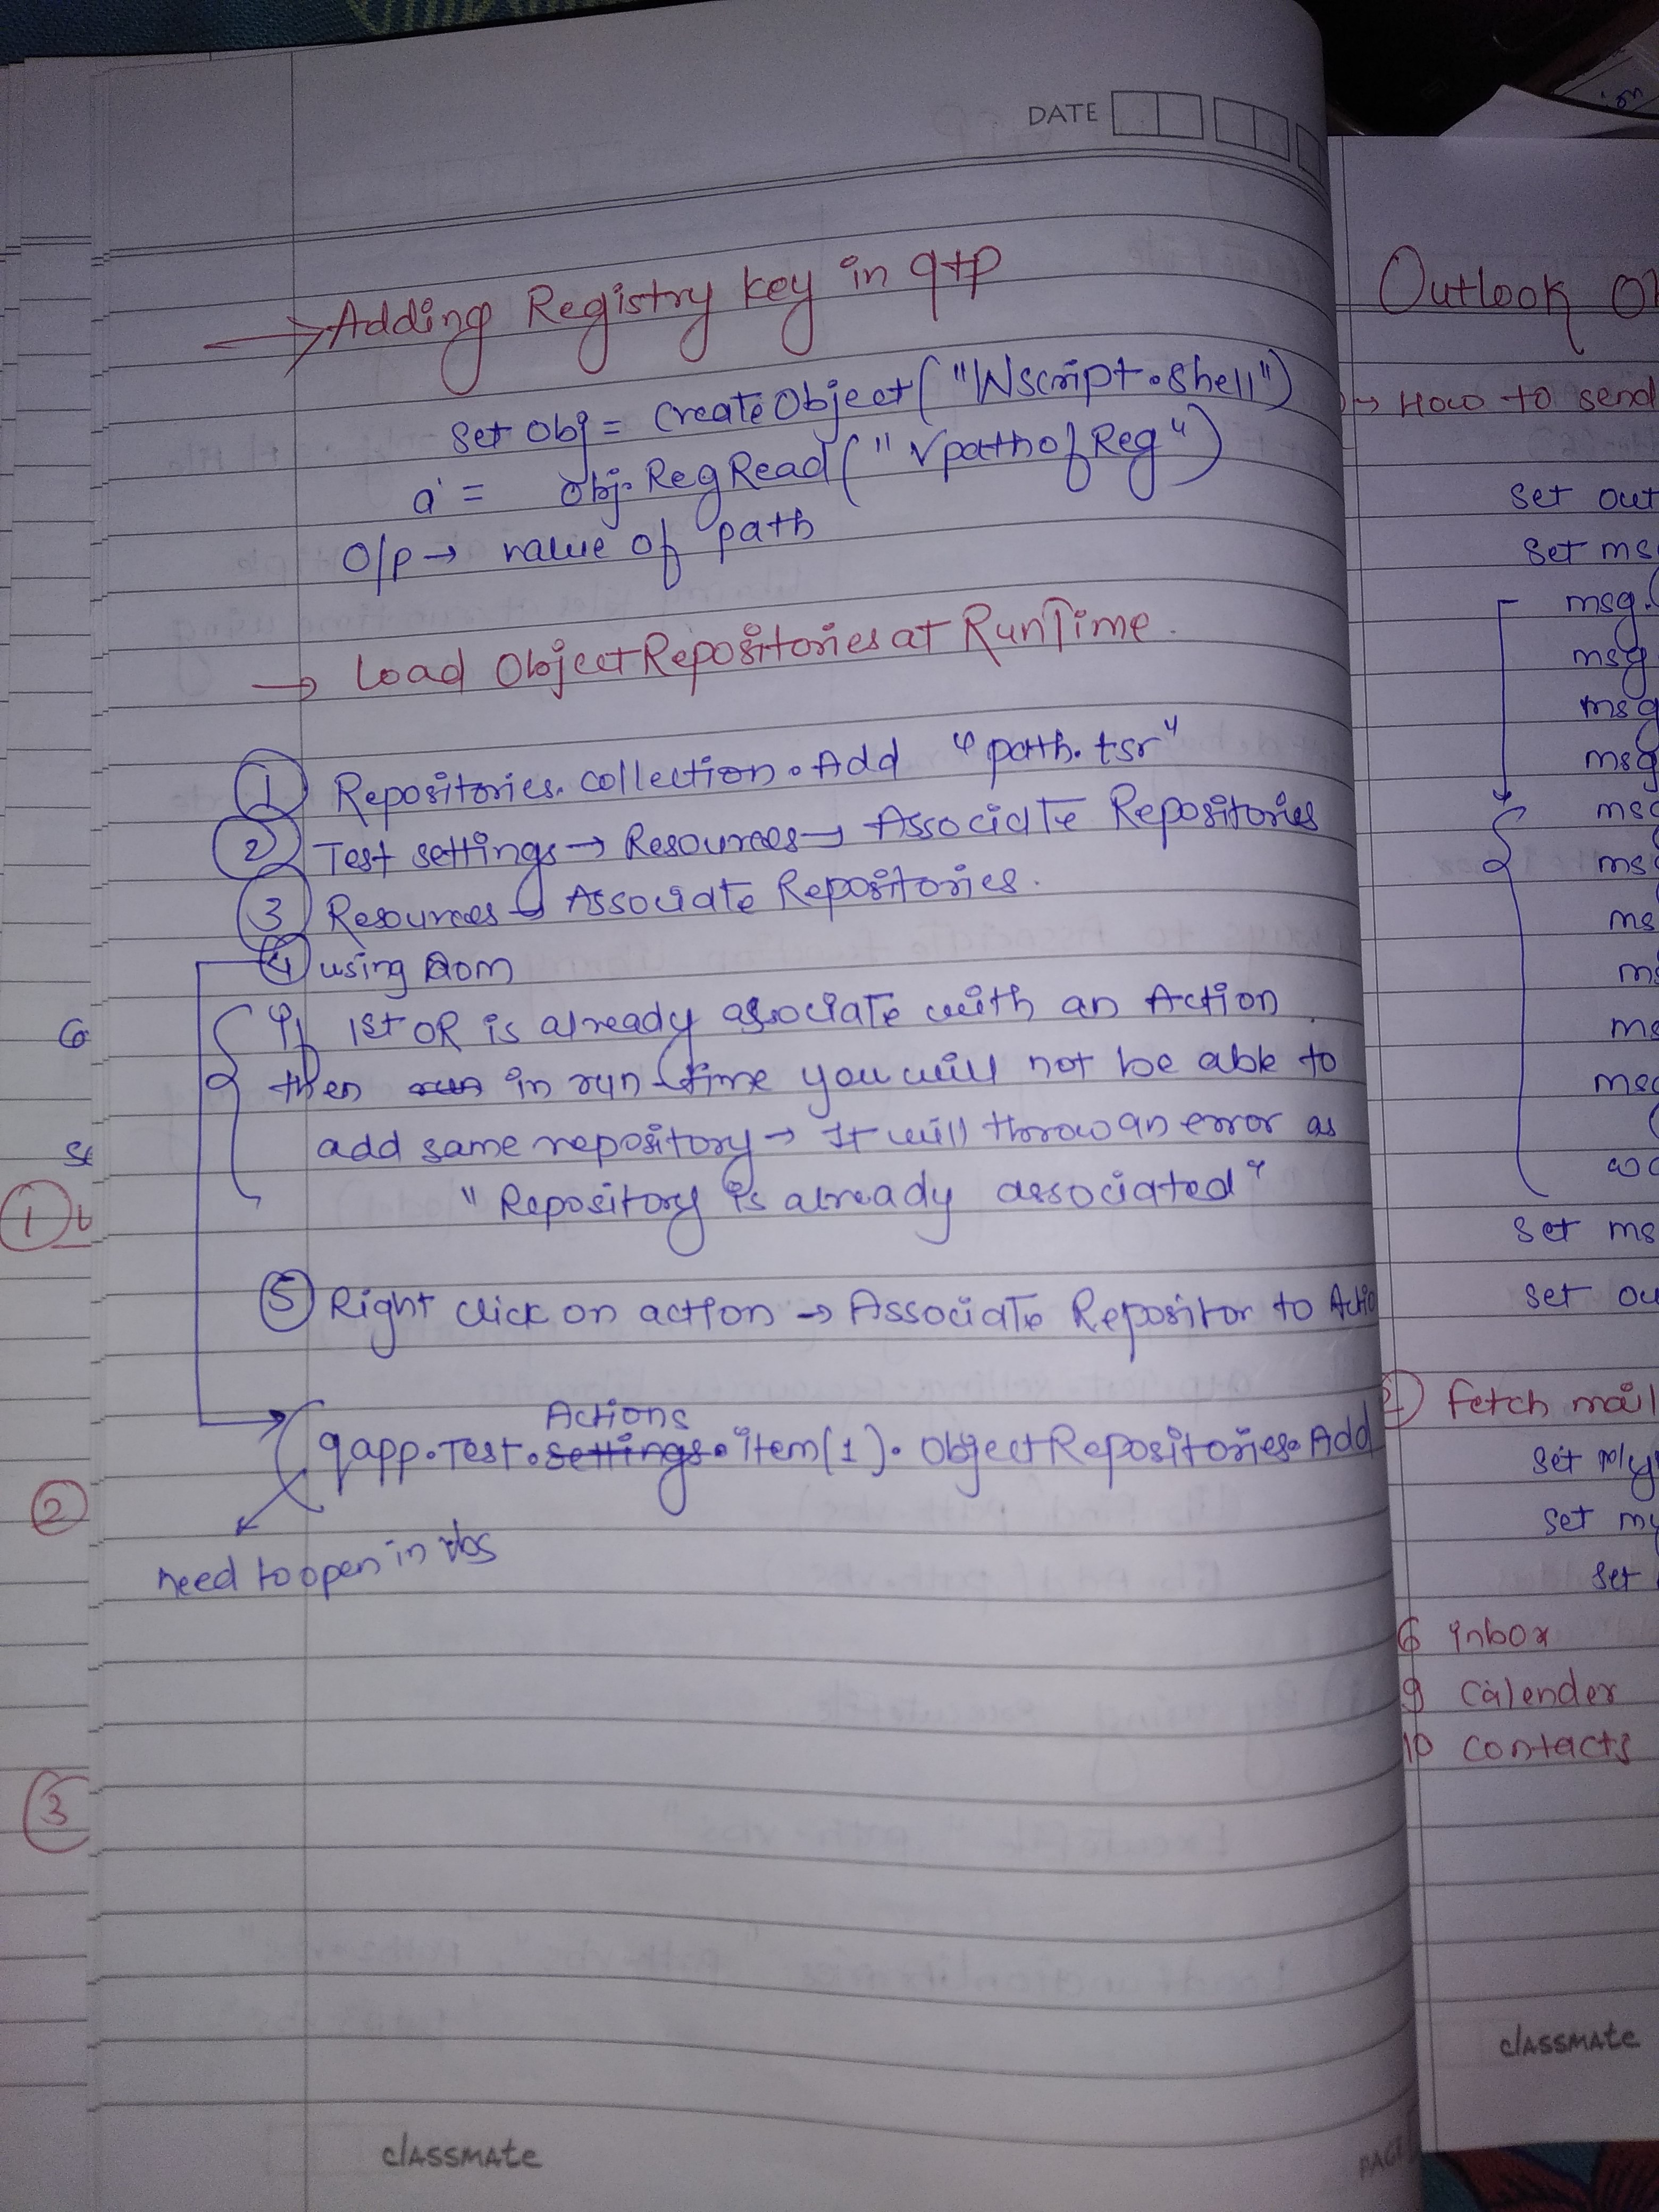 DATE
→ Adding Registry key in qtp
Set Obj = CreateObject("Wscript.Shell")
a = Obj.RegRead("pathofReg")
O/p → value of path
→ Load ObjectRepositories at RunTime.
① Repositories.collection.Add "path.tsr"
② Test settings → Resources → Associate Repositories
③ Resources → Associate Repositories.
④ using AOM
If 1st OR is already associate with an Action
then in run time you will not be able to
add same repository → It will throw an error as
"Repository is already associated"
⑤ Right click on action → Associate Repositor to Actio
Actions
qapp.Test.settings.item(1).ObjectRepositories.Add
need to open in vbs
classmate
PAGE
①
②
③
Outlook
→ How to send
Set out
Set ms
msg.
msg
msg
msg
msg
ms
ms
ms
ms
msg
Set ms
Set ou
fetch mail
Set my
Set
6 inbox
9 Calender
10 Contacts
classmate